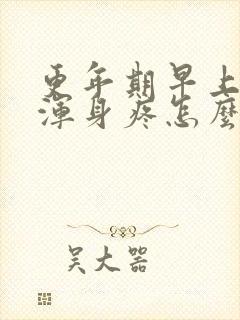 更年期早上
渾身疼怎麼
吴大器